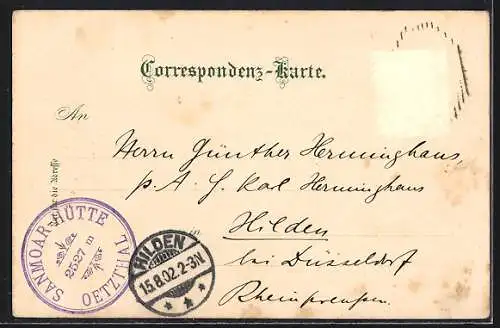 Correspondenz-Karte.
An
Herrn Günther Herminghaus,
p. A. G. Kal Herminghaus
in
Hilden
bei Düsseldorf
Rheinpreussen.
für die Adresse
SANMOAR-HÜTTE
2527 m
OETZTHAL
HILDEN
15.8.02.2-3N